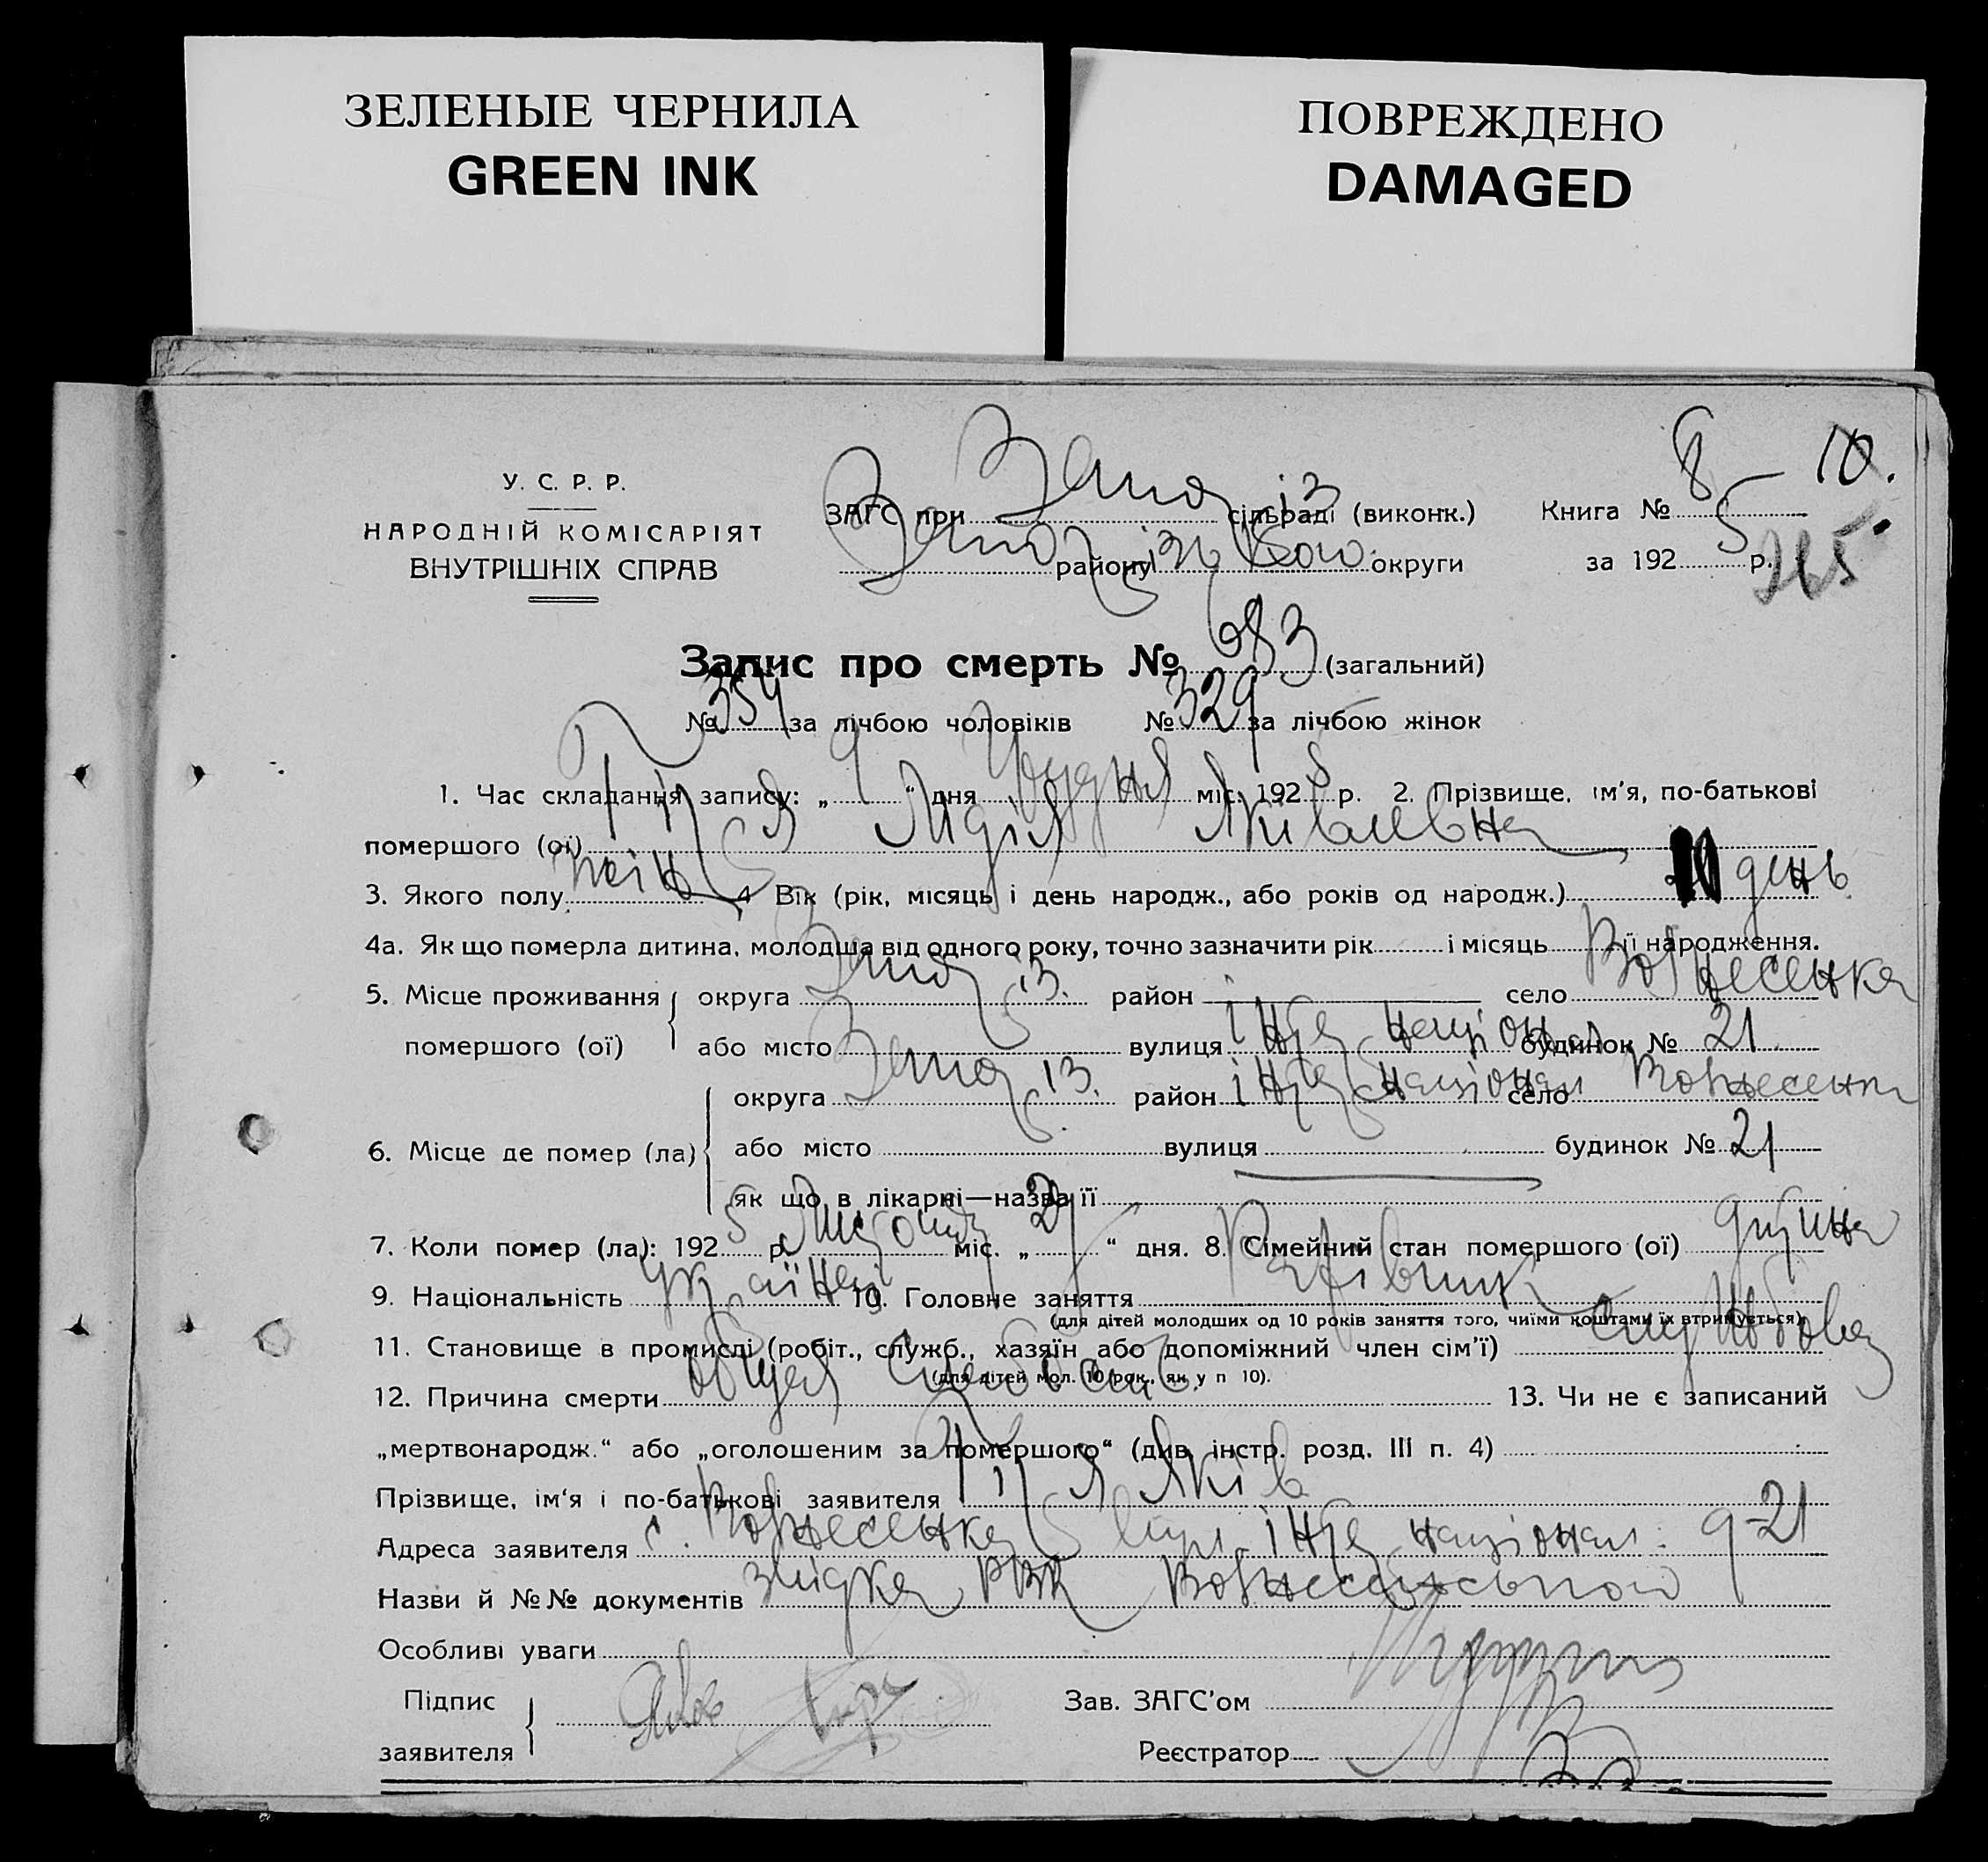 ЗЕЛЕНЫЕ ЧЕРНИЛА
GREEN INK
ПОВРЕЖДЕНО
DAMAGED
8 – 10.
У. С. Р. Р.
НАРОДНІЙ КОМІСАРІЯТ
ВНУТРІШНІХ СПРАВ
ЗАГС при Запоріз сільраді (виконк.)
Запорізької району округи
Книга №
за 1925 р.
265
Запис про смерть № 683 (загальний)
№ 354 за лічбою чоловіків № 329 за лічбою жінок
1. Час складання запису: „9“ дня Грудня міс. 1925 р. 2. Прізвище, ім'я, по-батькові
помершого (ої) Лидія Яківлевна
3. Якого полу жін 4 Вік (рік, місяць і день народж., або років од народж.) день
4а. Як що померла дитина, молодша від одного року, точно зазначити рік і місяць її народження.
5. Місце проживання помершого (ої) округа Запоріз. район село Вознесенка
або місто вулиця інтернаціонал будинок № 21
6. Місце де помер (ла) округа Запоріз. район інтернаціонал село Вознесенка
або місто вулиця будинок № 21
як що в лікарні—назва її
7. Коли помер (ла): 1925 р. Листопада міс. „29“ дня. 8. Сімейний стан помершого (ої) дитина
9. Національність Українці 10. Головне заняття
(для дітей молодших од 10 років заняття того, чиїми коштами їх втримується).
11. Становище в промислі (робіт., служб., хазяїн або допоміжний член сім'ї)
(для дітей мол. 10 рок., як у п 10).
12. Причина смерти общая слабость 13. Чи не є записаний
„мертвонародж.“ або „оголошеним за помершого“ (див. інстр. розд. III п. 4)
Прізвище, ім'я і по-батькові заявителя Яків
Адреса заявителя с. Вознесенка вул. інтернаціонал. 21
Назви й №№ документів РВК Вознесенської
Особливі уваги
Підпис
заявителя Яков
Зав. ЗАГС'ом
Реєстратор